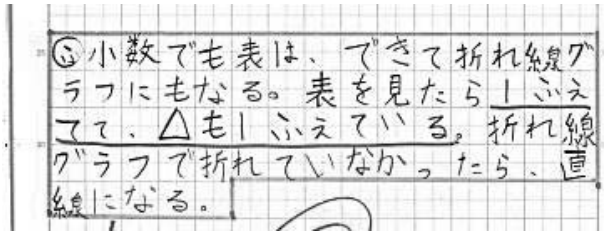 ㋛小数でも表は、できて折れ線グ
ラフにもなる。表を見たら1ふえ
てて、△も1ふえている。折れ線
グラフで折れていなかったら、直
線になる。